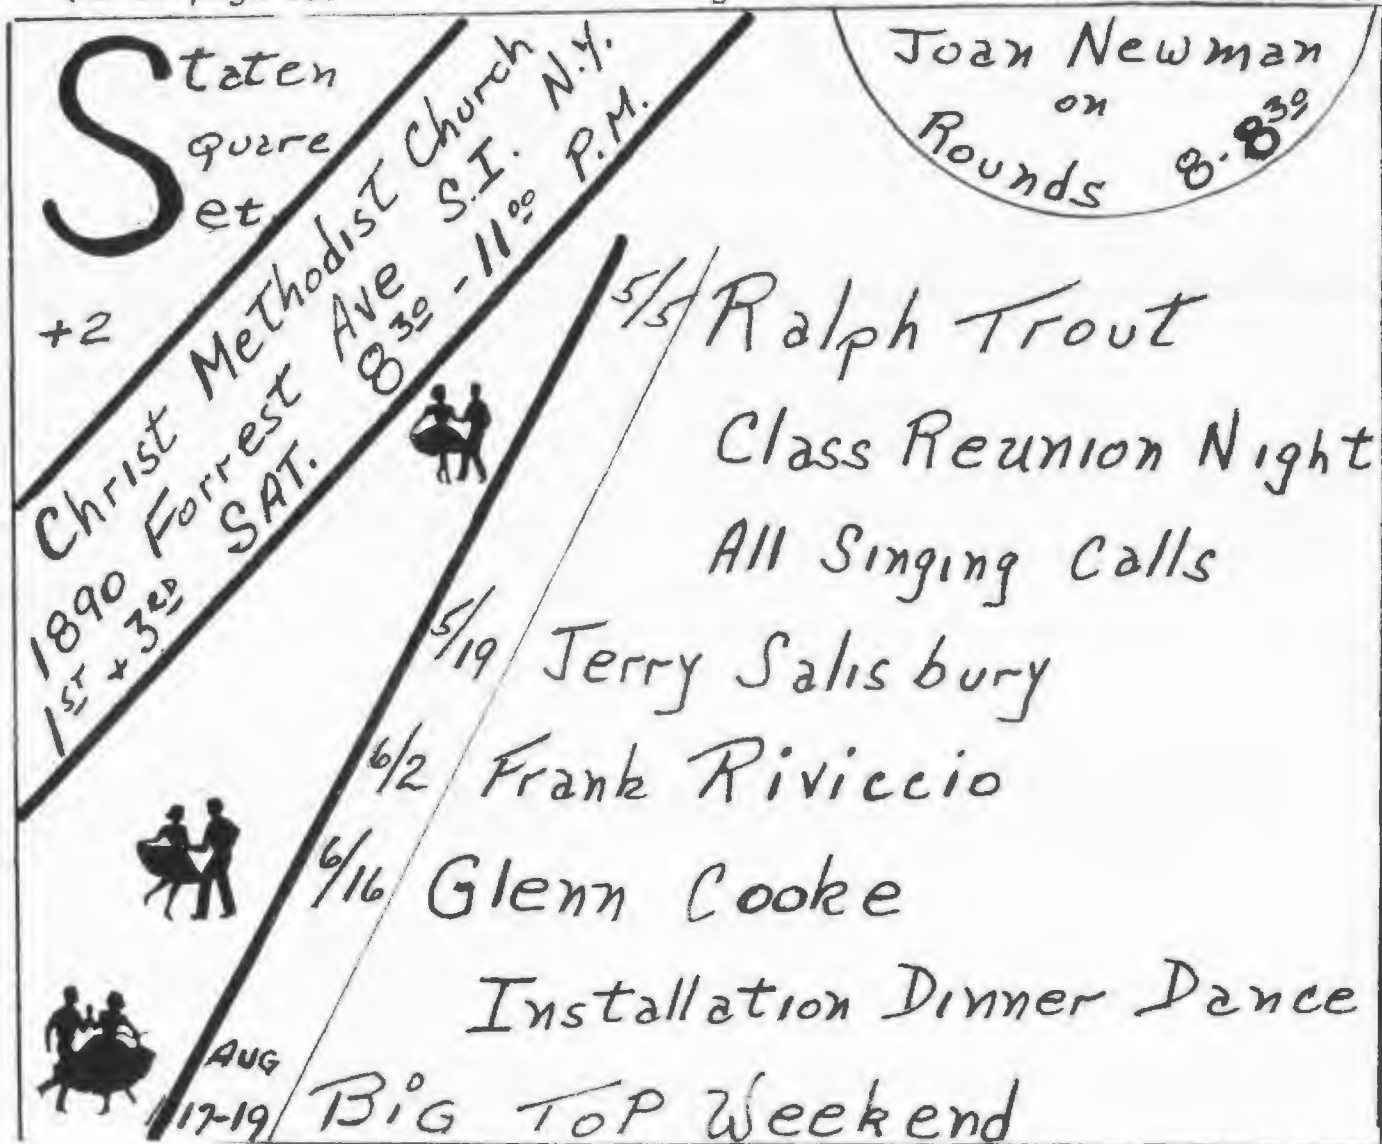 Staten
Square
Set
+2
Christ Methodist Church
1890 Forrest Ave S.I. N.Y.
1ST + 3RD SAT. 8³⁰ - 11⁰⁰ P.M.
Joan Newman
on
Rounds 8-8³⁰
5/5 Ralph Trout
Class Reunion Night
All Singing Calls
5/19 Jerry Salisbury
6/2 Frank Riviccio
6/16 Glenn Cooke
Installation Dinner Dance
AUG
17-19 BiG ToP Weekend